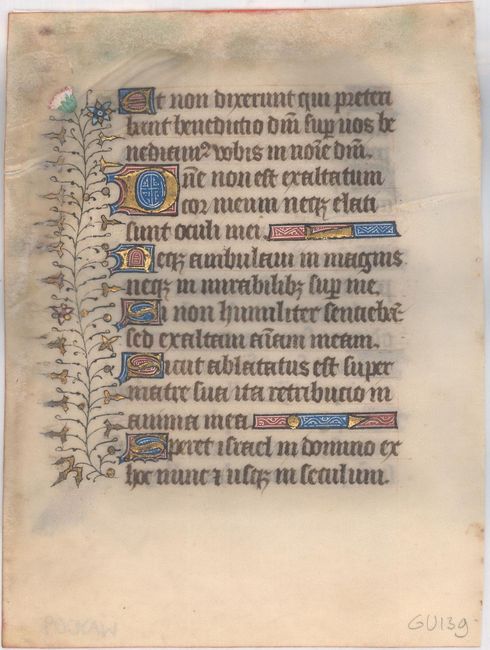 Et non dixerunt qui preteri
bant benedictio dñi sup uos be
nediximꝰ vobis in noīe dñi.
Dñe non est exaltatum
cor meum neqꝫ elati
sunt oculi mei
Neqꝫ ambulaui in magnis
neqꝫ in mirabilibꝫ sup me.
Si non humiliter sentiebā
sed exaltaui aīam meam.
Sicut ablatatus est super
matre sua ita retributio in
anima mea
Speret israel in domino ex
hoc nunc ⁊ usqꝫ in seculum.
GU139